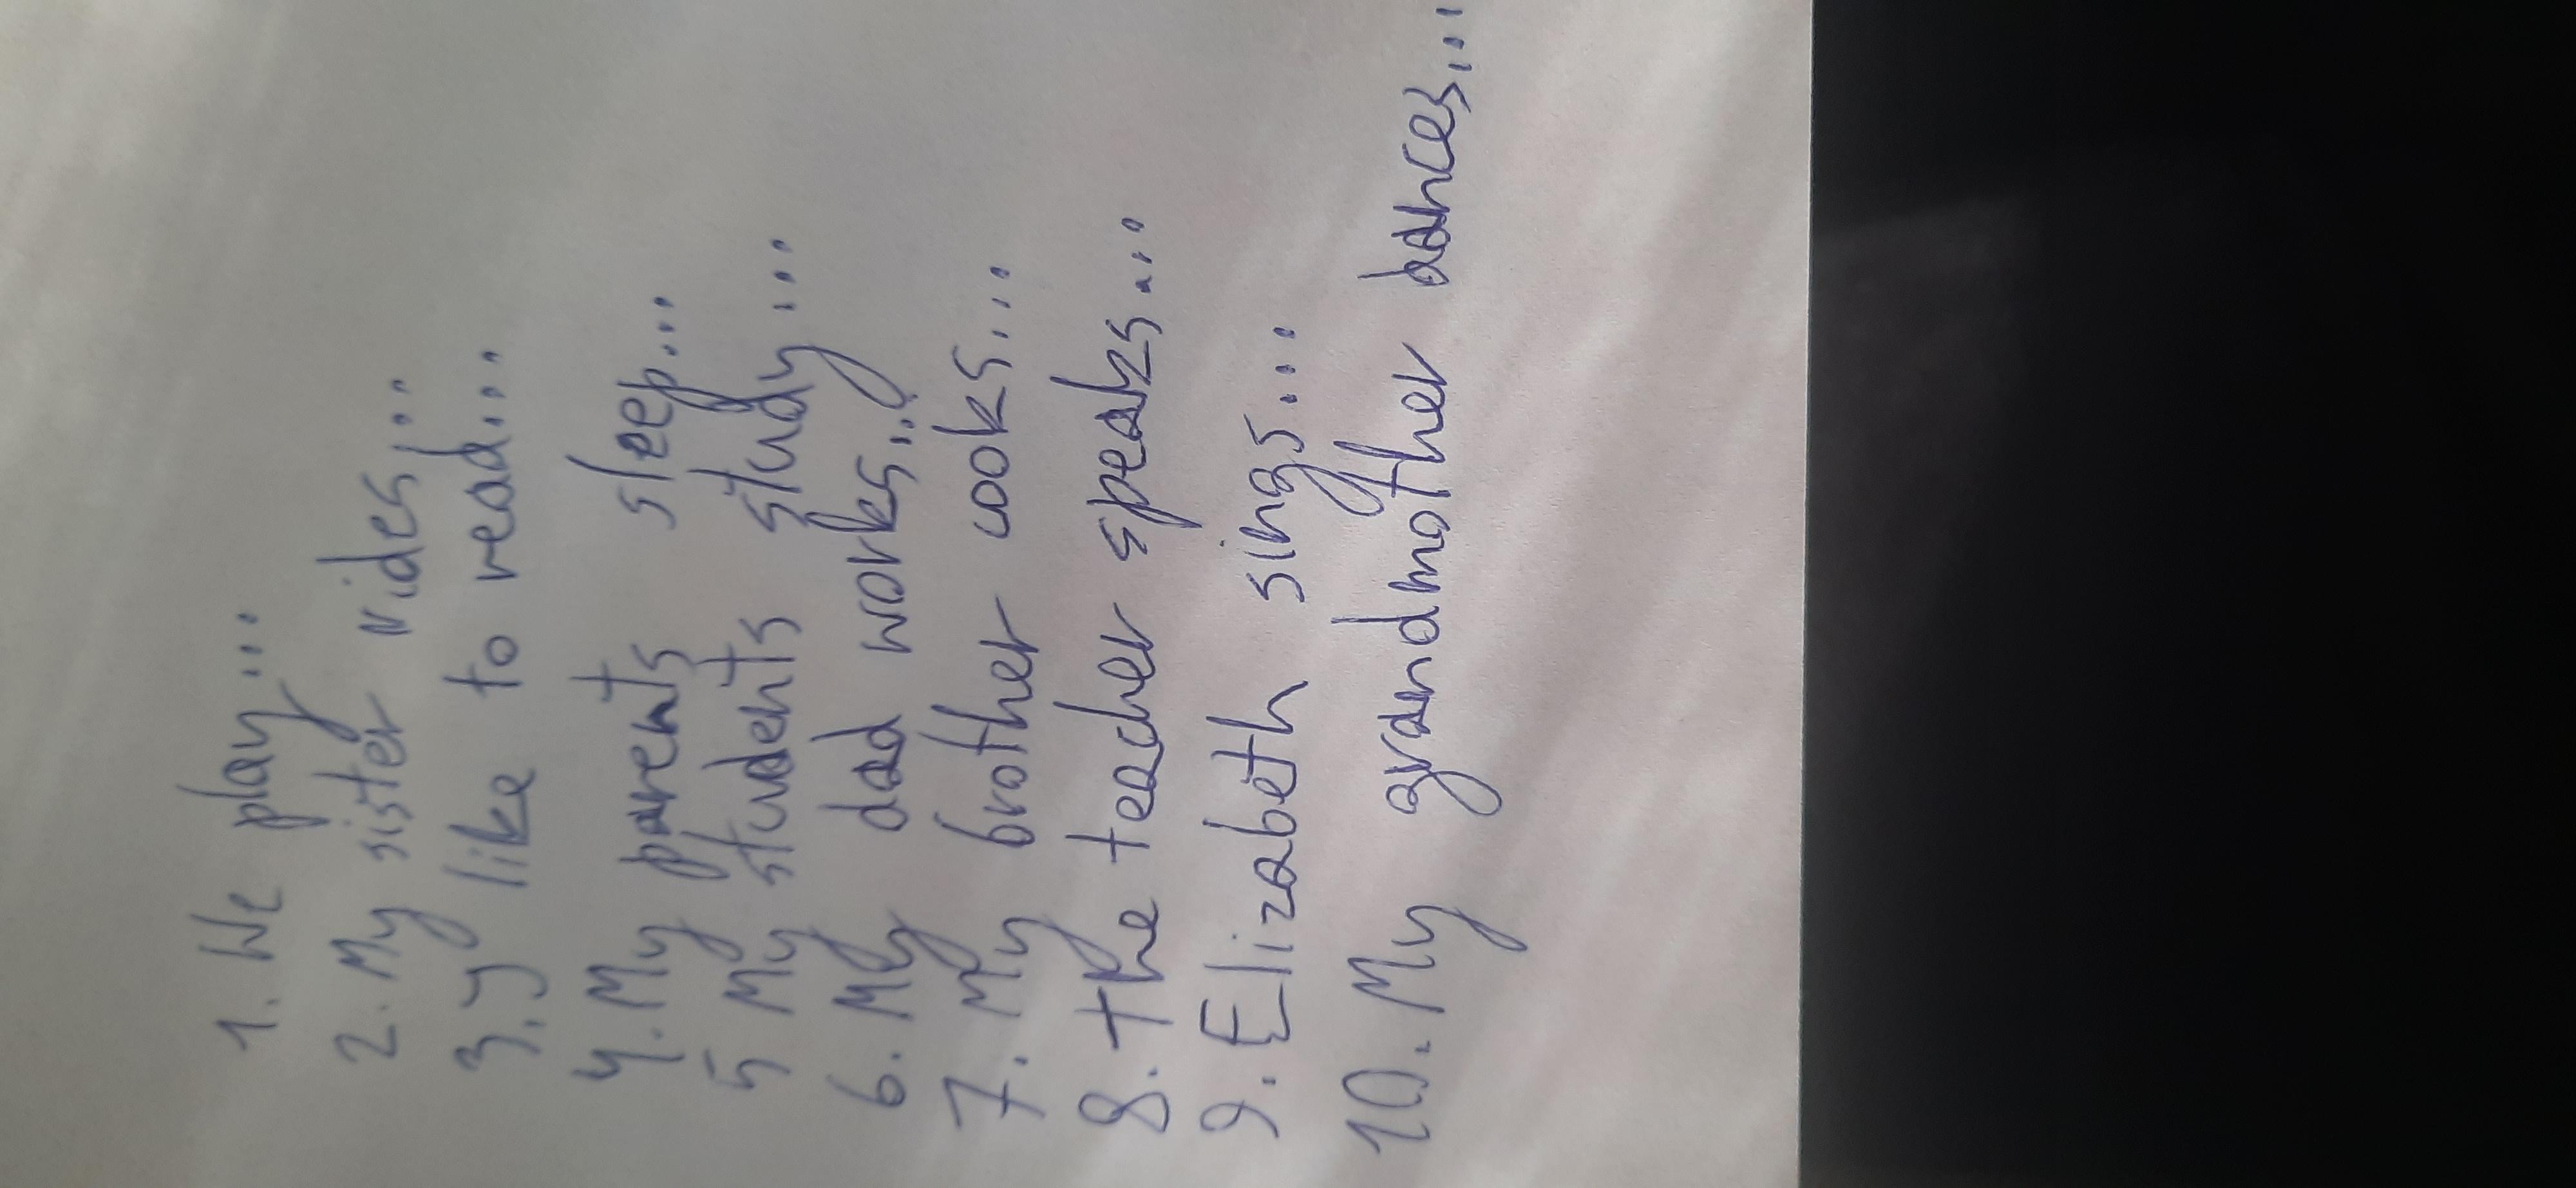 1. We play...
2. My sister rides...
3. y like to read...
4. My parents sleep...
5 My students study...
6. My dad works...
7. My brother cooks...
8. the teacher speaks...
9. Elizabeth sings...
10. My grandmother dances...